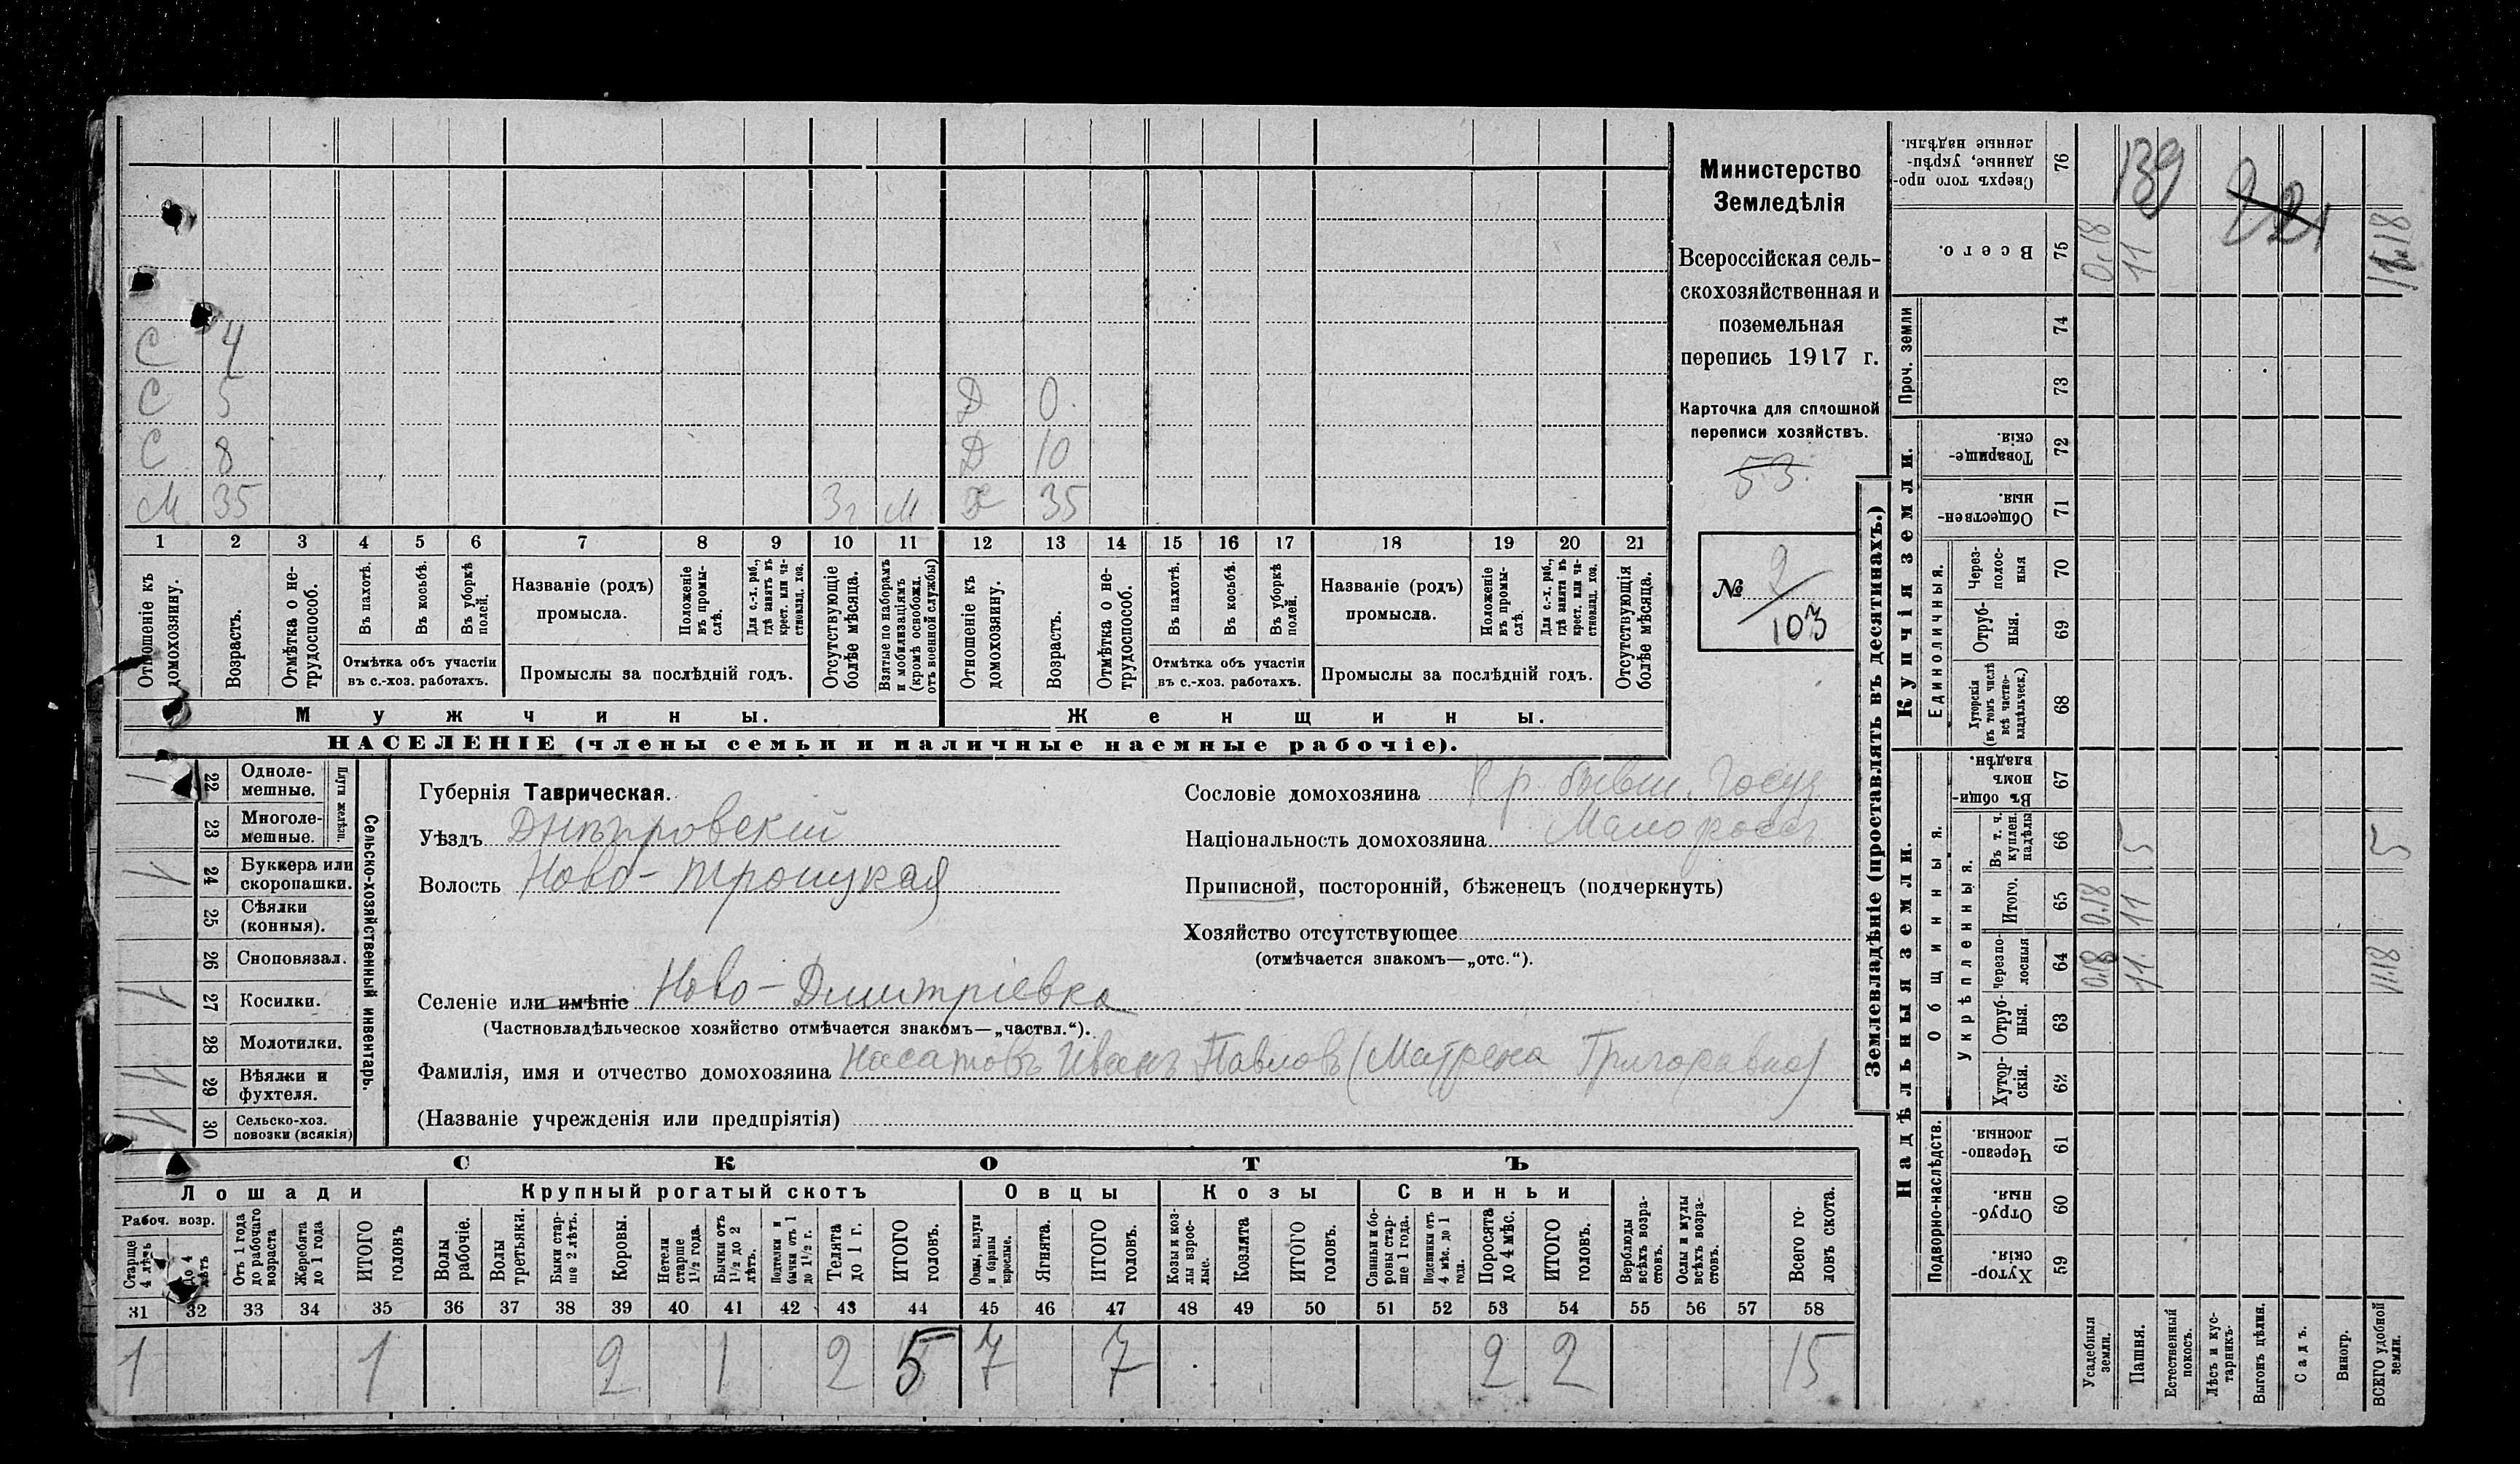 С 4
С 5 Д 0.
С 8 Д 10
М 35 3г М Ж 35
1 2 3 4 5 6 7 8 9 10 11 12 13 14 15 16 17 18 19 20 21
Отношеніе къ домохозяину.
Возрастъ.
Отмѣтка о не-трудоспособ.
Въ пахотѣ.
Въ косьбѣ.
Въ уборкѣ полей.
Отмѣтка объ участіи
въ с.-хоз. работахъ.
Названіе (родъ)
промысла.
Положеніе въ промы-слѣ.
Для с.-х. раб., гдѣ занятъ въ крест. или ча-стновлад. хоз.
Промыслы за послѣдній годъ.
Отсутствующіе болѣе мѣсяца.
Взятые по наборамъ и мобилизаціямъ (кромѣ освобожд. отъ военной службы)
Отношеніе къ домохозяину.
Возрастъ.
Отмѣтка о не-трудоспособ.
Въ пахотѣ.
Въ косьбѣ.
Въ уборкѣ полей.
Отмѣтка объ участіи
въ с.-хоз. работахъ.
Названіе (родъ)
промысла.
Положеніе въ промы-слѣ.
Для с.-х. раб., гдѣ занятъ въ крест. или ча-стновлад. хоз.
Промыслы за послѣдній годъ.
Отсутствующія болѣе мѣсяца.
Мужчины. Женщины.
НАСЕЛЕНІЕ (члены семьи и наличные наемные рабочіе).
Министерство
Земледѣлія
Всероссійская сель-
скохозяйственная и
поземельная
перепись 1917 г.
Карточка для сплошной
переписи хозяйствъ.
53.
№ 2/103
Сельско-хозяйственный инвентарь.
Плуги желѣзн.
1 22 Одноле-мешные.
23 Многоле-мешные.
1 24 Буккера или скоропашки.
25 Сѣялки (конныя).
26 Сноповязал.
1 27 Косилки.
28 Молотилки.
29 Вѣялки и фухтеля.
30 Сельско-хоз. повозки (всякія)
Губернія Таврическая.
Уѣздъ Днѣпровскій
Волость Ново-Троицкая
Селеніе или имѣніе Ново-Дмитріевка
(Частновладѣльческое хозяйство отмѣчается знакомъ—„частвл.“).
Сословіе домохозяина Кр. бывш. Госуд
Національность домохозяина Малороссъ
Приписной, посторонній, бѣженецъ (подчеркнуть)
Хозяйство отсутствующее
(отмѣчается знакомъ—„отс.“).
Фамилія, имя и отчество домохозяина Насатовъ Иванъ Павловъ (Матрена Григоравна)
(Названіе учрежденія или предпріятія)
СКОТЪ
Лошади Крупный рогатый скотъ Овцы Козы Свиньи
Рабоч. возр.
Старше 4 лѣтъ
до 4 лѣтъ
Отъ 1 года до рабочаго возраста
Жеребята до 1 года
ИТОГО головъ
Волы рабочіе.
Волы третьяки.
Быки стар-ше 2 лѣтъ.
Коровы.
Нетели старше 1½ года.
Бычки отъ 1½ до 2 лѣтъ.
Подтелки и бычки отъ 1 до 1½ г.
Телята до 1 г.
ИТОГО головъ.
Овцы, валухи и бараны взрослые.
Ягнята.
ИТОГО головъ.
Козы и коз-лы взрос-лые.
Козлята
ИТОГО головъ.
Свиньи и бо-ровы стар-ше 1 года.
Подсвинки отъ 4 мѣс. до 1 года.
Поросята до 4 мѣс.
ИТОГО головъ.
Верблюды всѣхъ возра-стовъ.
Ослы и мулы всѣхъ возра-стовъ.
Всего го-ловъ скота.
31 32 33 34 35 36 37 38 39 40 41 42 43 44 45 46 47 48 49 50 51 52 53 54 55 56 57 58
1 1 2 1 2 5 7 7 2 2 15
Землевладѣніе (проставлять въ десятинахъ.)
Надѣльныя земли. Купчія земли. Проч. земли
Подворно-наслѣдств.
Общинныя.
Укрѣпленныя.
Единоличныя.
Хутор-скія. 59
Отруб-ныя. 60
Черезпо-лосныя. 61
Хутор-скія. 62
Отруб-ныя. 63
Черезпо-лосныя 64 0.18 11. 11.18
Итого. 65 0.18 11
Въ т. ч. куплен. надѣлы 66 5 5
Въ общи-номъ владѣн. 67
Хуторскія (въ томъ числѣ всѣ частно-владѣльческ.) 68
Отруб-ныя. 69
Через-полос-ныя 70
Обществен-ныя. 71
Товарище-скія. 72
73
74
Всего. 75 0.18 11 11.18
Сверхъ того про-данные, укрѣп-ленные надѣлы. 76
139
221
Усадебныя земли.
Пашня.
Естественный покосъ.
Лѣсъ и кус-тарникъ.
Выгонъ цѣлин.
Садъ.
Виногр.
ВСЕГО удобной земли.